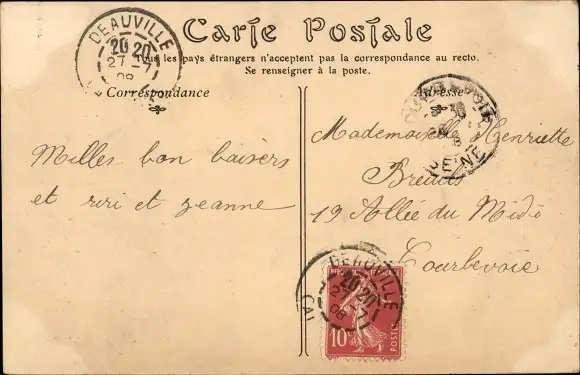 Carte Postale
Tous les pays étrangers n'acceptent pas la correspondance au recto.
Se renseigner à la poste.
DEAUVILLE
20 20
27-7
08
Correspondance
Adresse
Milles bon baisers
et riri et jeanne
Mademoiselle Henriette
19 Allée du Midi
Courbevoie
DEAUVILLE
20 20
27-7
08
10
POSTES